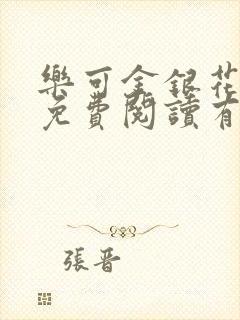 樂可金銀花
免費閱讀有
張晉